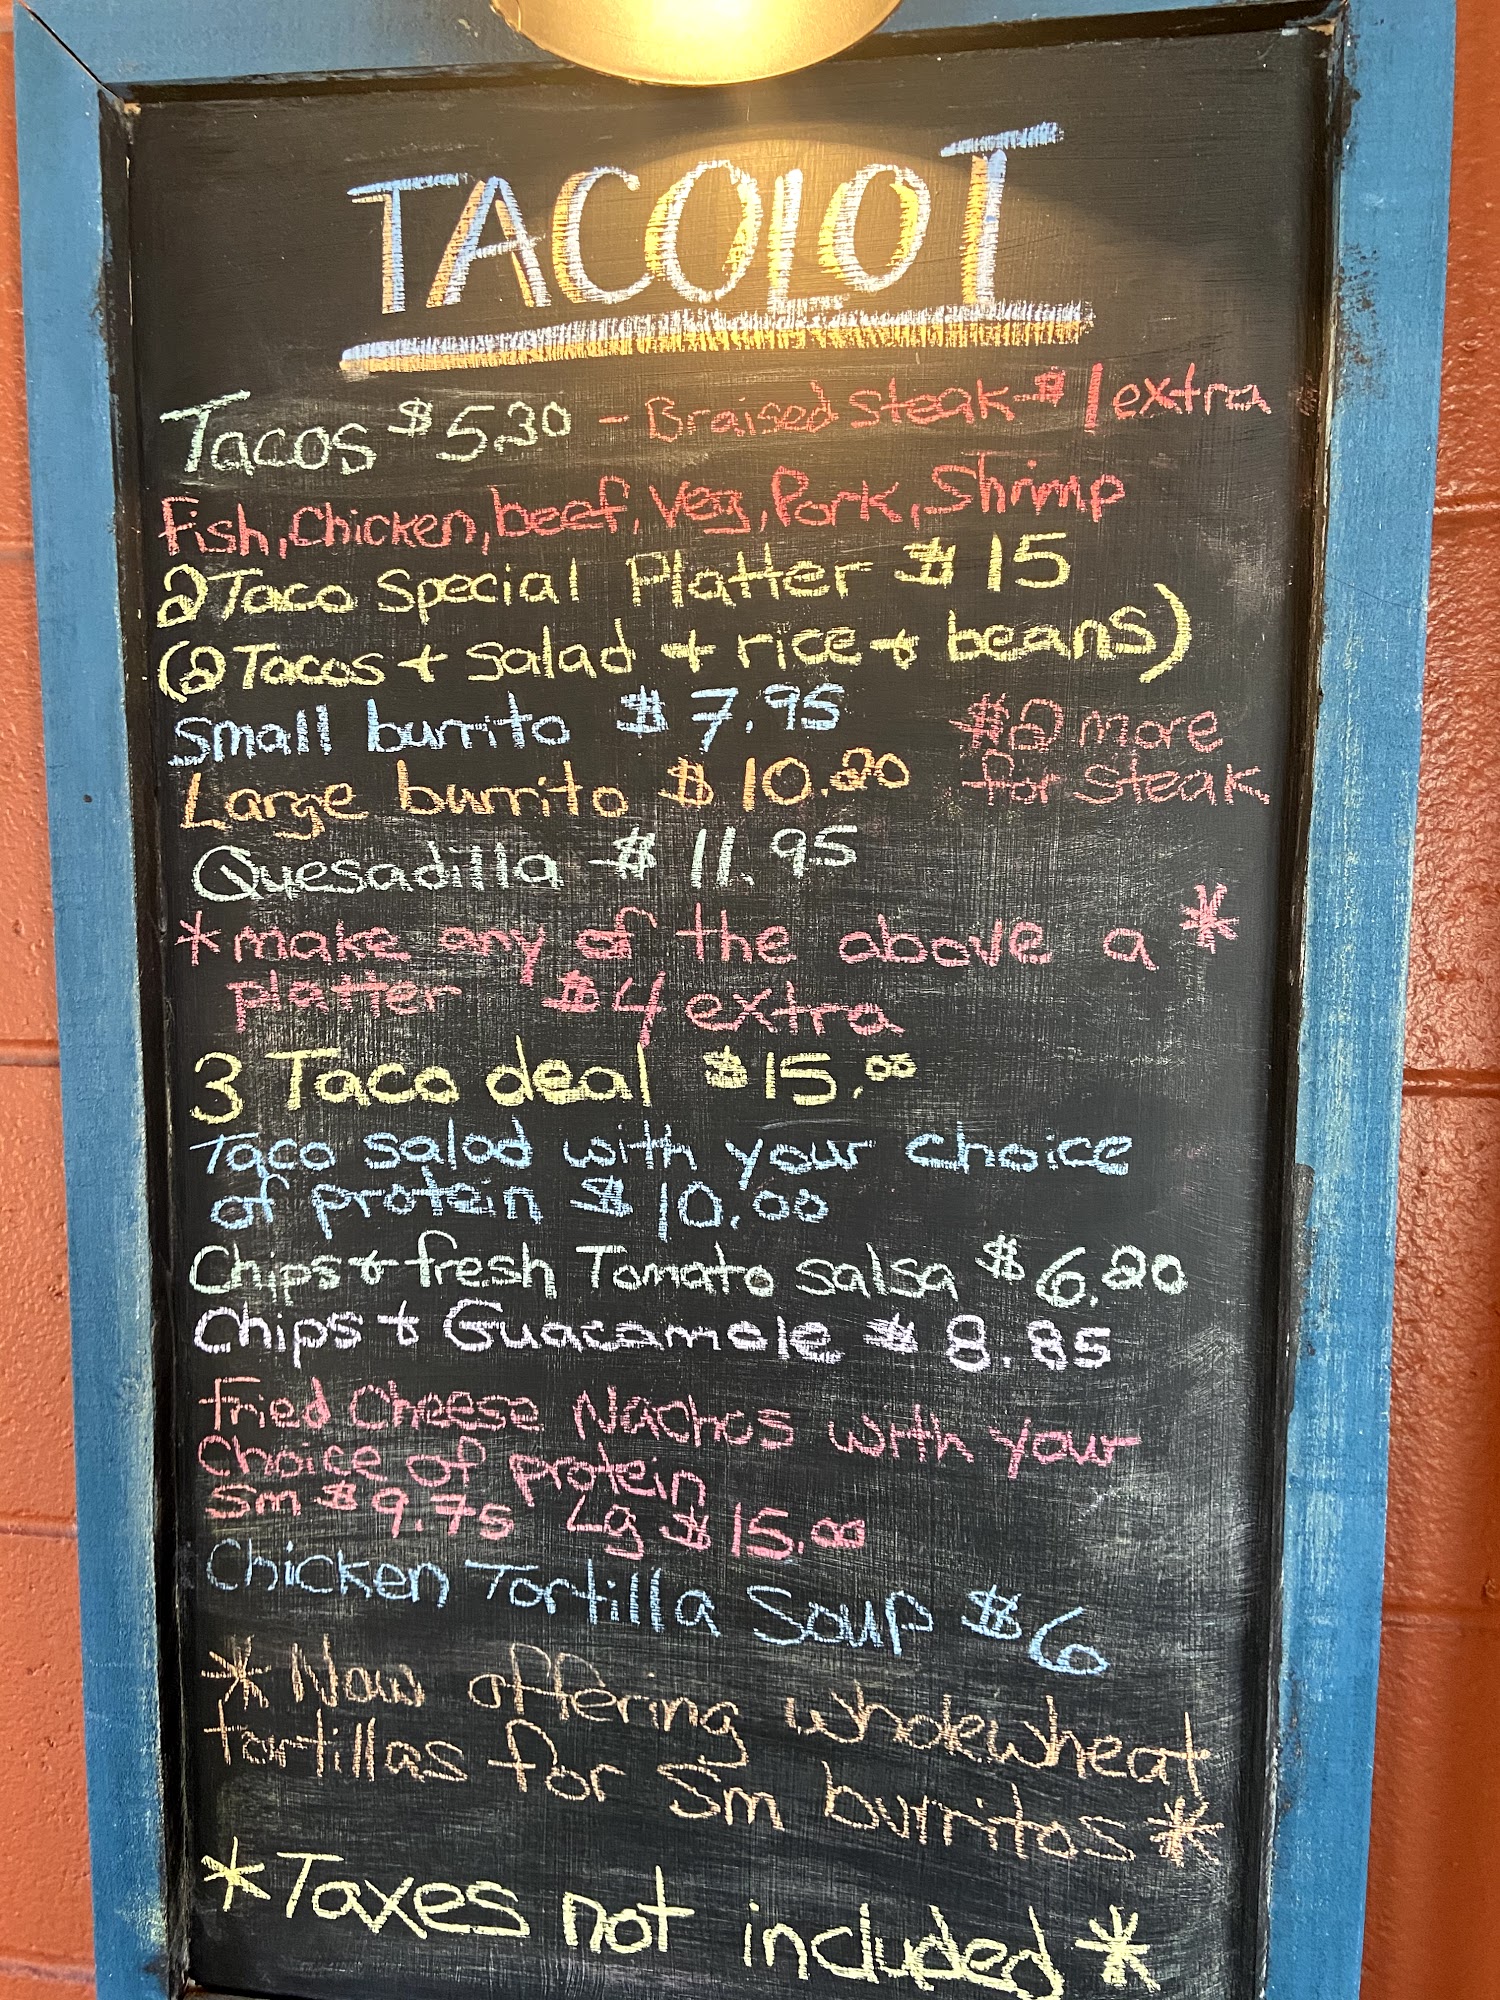 TACOlOT
Tacos $5.20 - Braised steak $1 extra
Fish, Chicken, beef, Veg, Pork, Shrimp
2 Taco Special Platter $15
(2 Tacos + salad + rice + beans)
Small burrito $7.95 $2 more
Large burrito $10.20 for steak
Quesadilla $11.95
*make any of the above a *
platter $4 extra
3 Taco deal $15.00
Taco salad with your choice
of protein $10.00
Chips + fresh Tomato salsa $6.20
Chips + Guacamole $8.85
Fried Cheese Nachos with your
Choice of protein
Sm $9.75 Lg $15.00
Chicken Tortilla Soup $6
*Now offering wholewheat
tortillas for Sm burritos*
*Taxes not included*